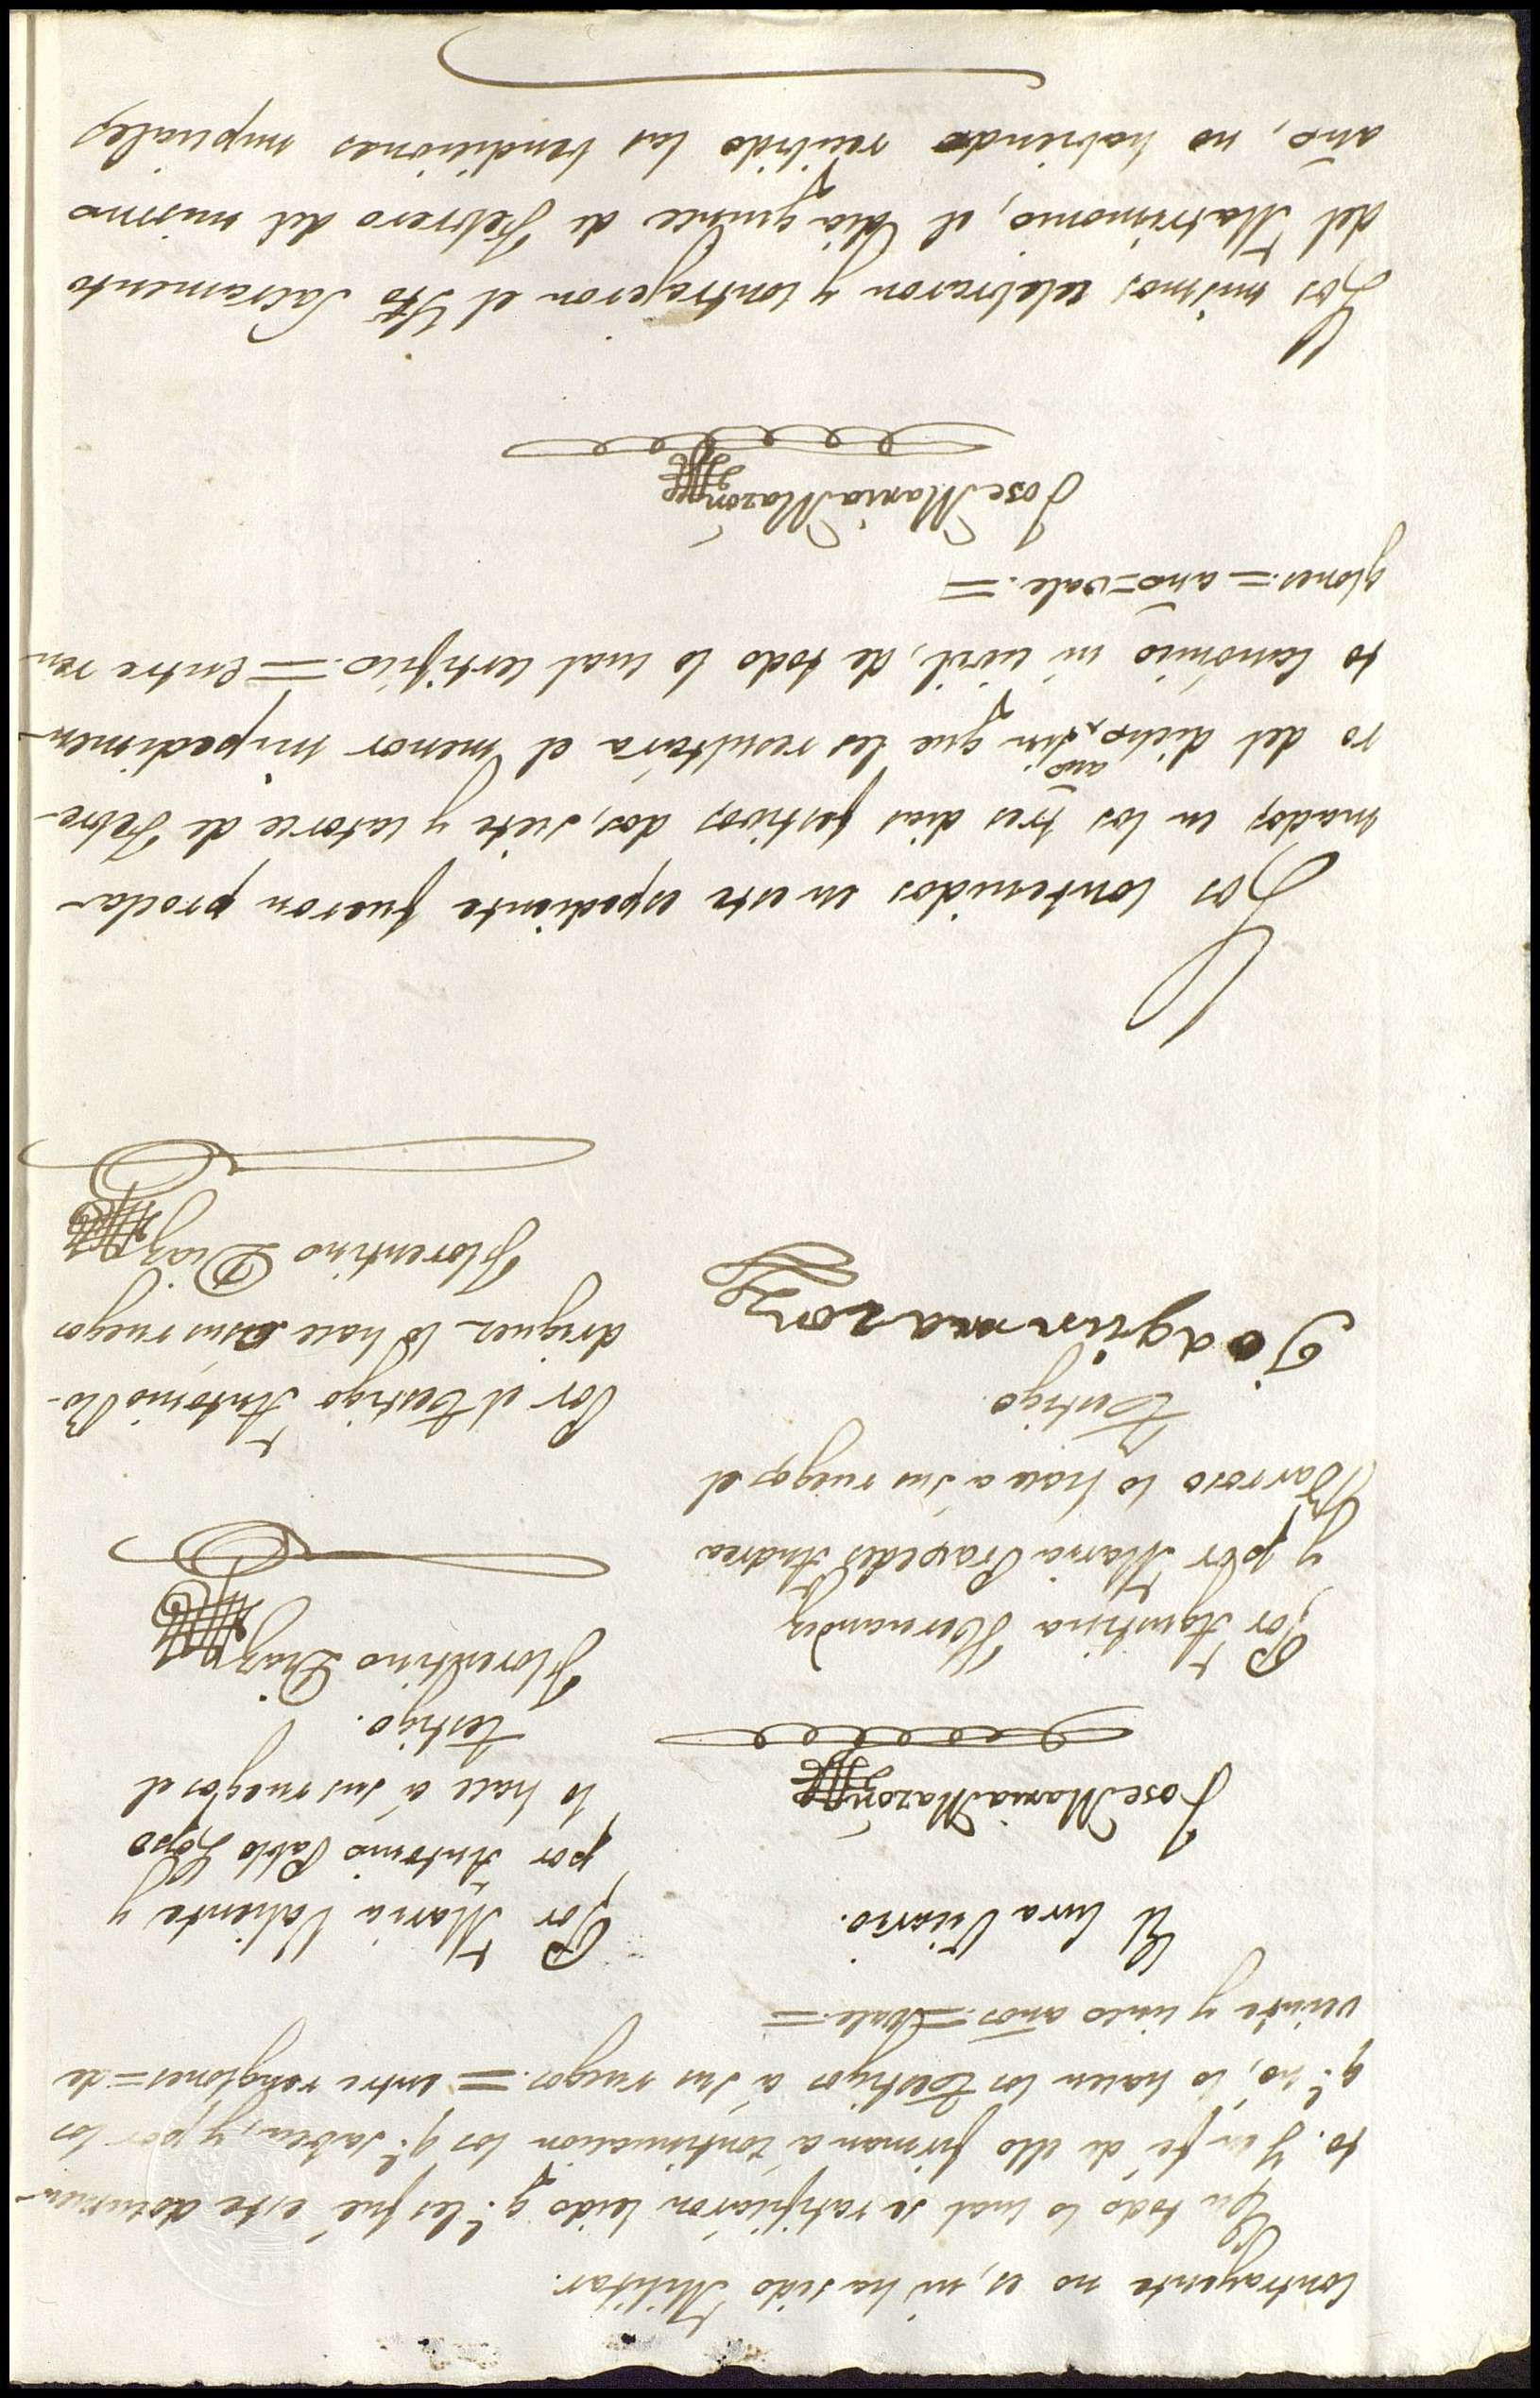 Contrayente no es, ni ha sido Militar.
En todo lo cual se ratificaron leido q.e les fué este documen-
to. Y en fé de ello firman á continuacion los q.e saben, y por los
q.e no, lo hacen los testigos á sus ruegos. = entre renglones = de
veinte y cinco años = Vale. =
El Cura Vicario.
Jose Maria Mazón
Por Maria Valiente y
por Antonio Pablo Lopo
lo hace á sus ruegos el
testigo.
Florentino Diaz
Por Agustina Hernandez
y por Maria Praxedes Andrea
Barroso lo hace á sus ruegos el
testigo.
Joaquin mazon
Por el testigo Antonio Ro-
driguez lo hace á sus ruegos
Florentino Diaz
Los contenidos en este espediente fueron procla-
mados en los tres dias festivos dos, siete y catorce de Febre-
ro del dicho año, sin que les resultára el menor impedimen-
to Canónico ni civil, de todo lo cual certifico. = Entre ren-
glones. = año = vale. =
Jose Maria Mazón
Los mismos celebraron y contrajeron el Sto Sacramento
del Matrimonio, el dia quince de Febrero del mismo
año, no habiendo recibido las bendiciones nupciales